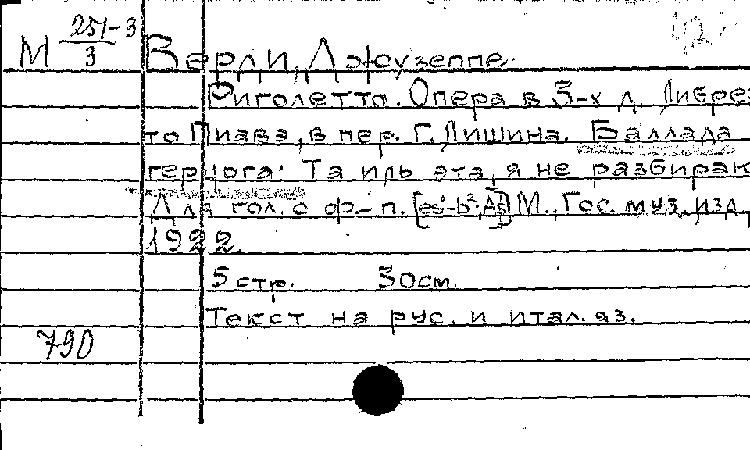 М 251-3/3
Верди, Джузеппе.
Риголетто. Опера в 3-х д. Либрет
то Пиавэ, в пер. Г. Лишина. Баллада
герцога: Та иль эта, я не разбираю
Для гол. с ф-п. [es¹-b²; As] М., Гос. муз. изд.,
1922.
5 стр. 30 см.
Текст на рус. и итал. яз.
790